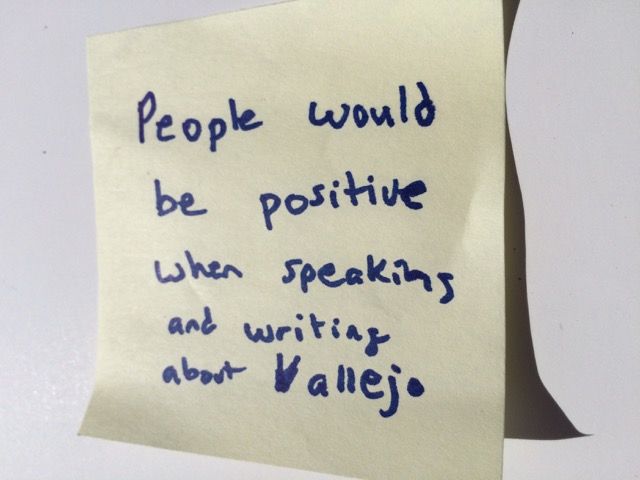 People would
be positive
when speaking
and writing
about Vallejo